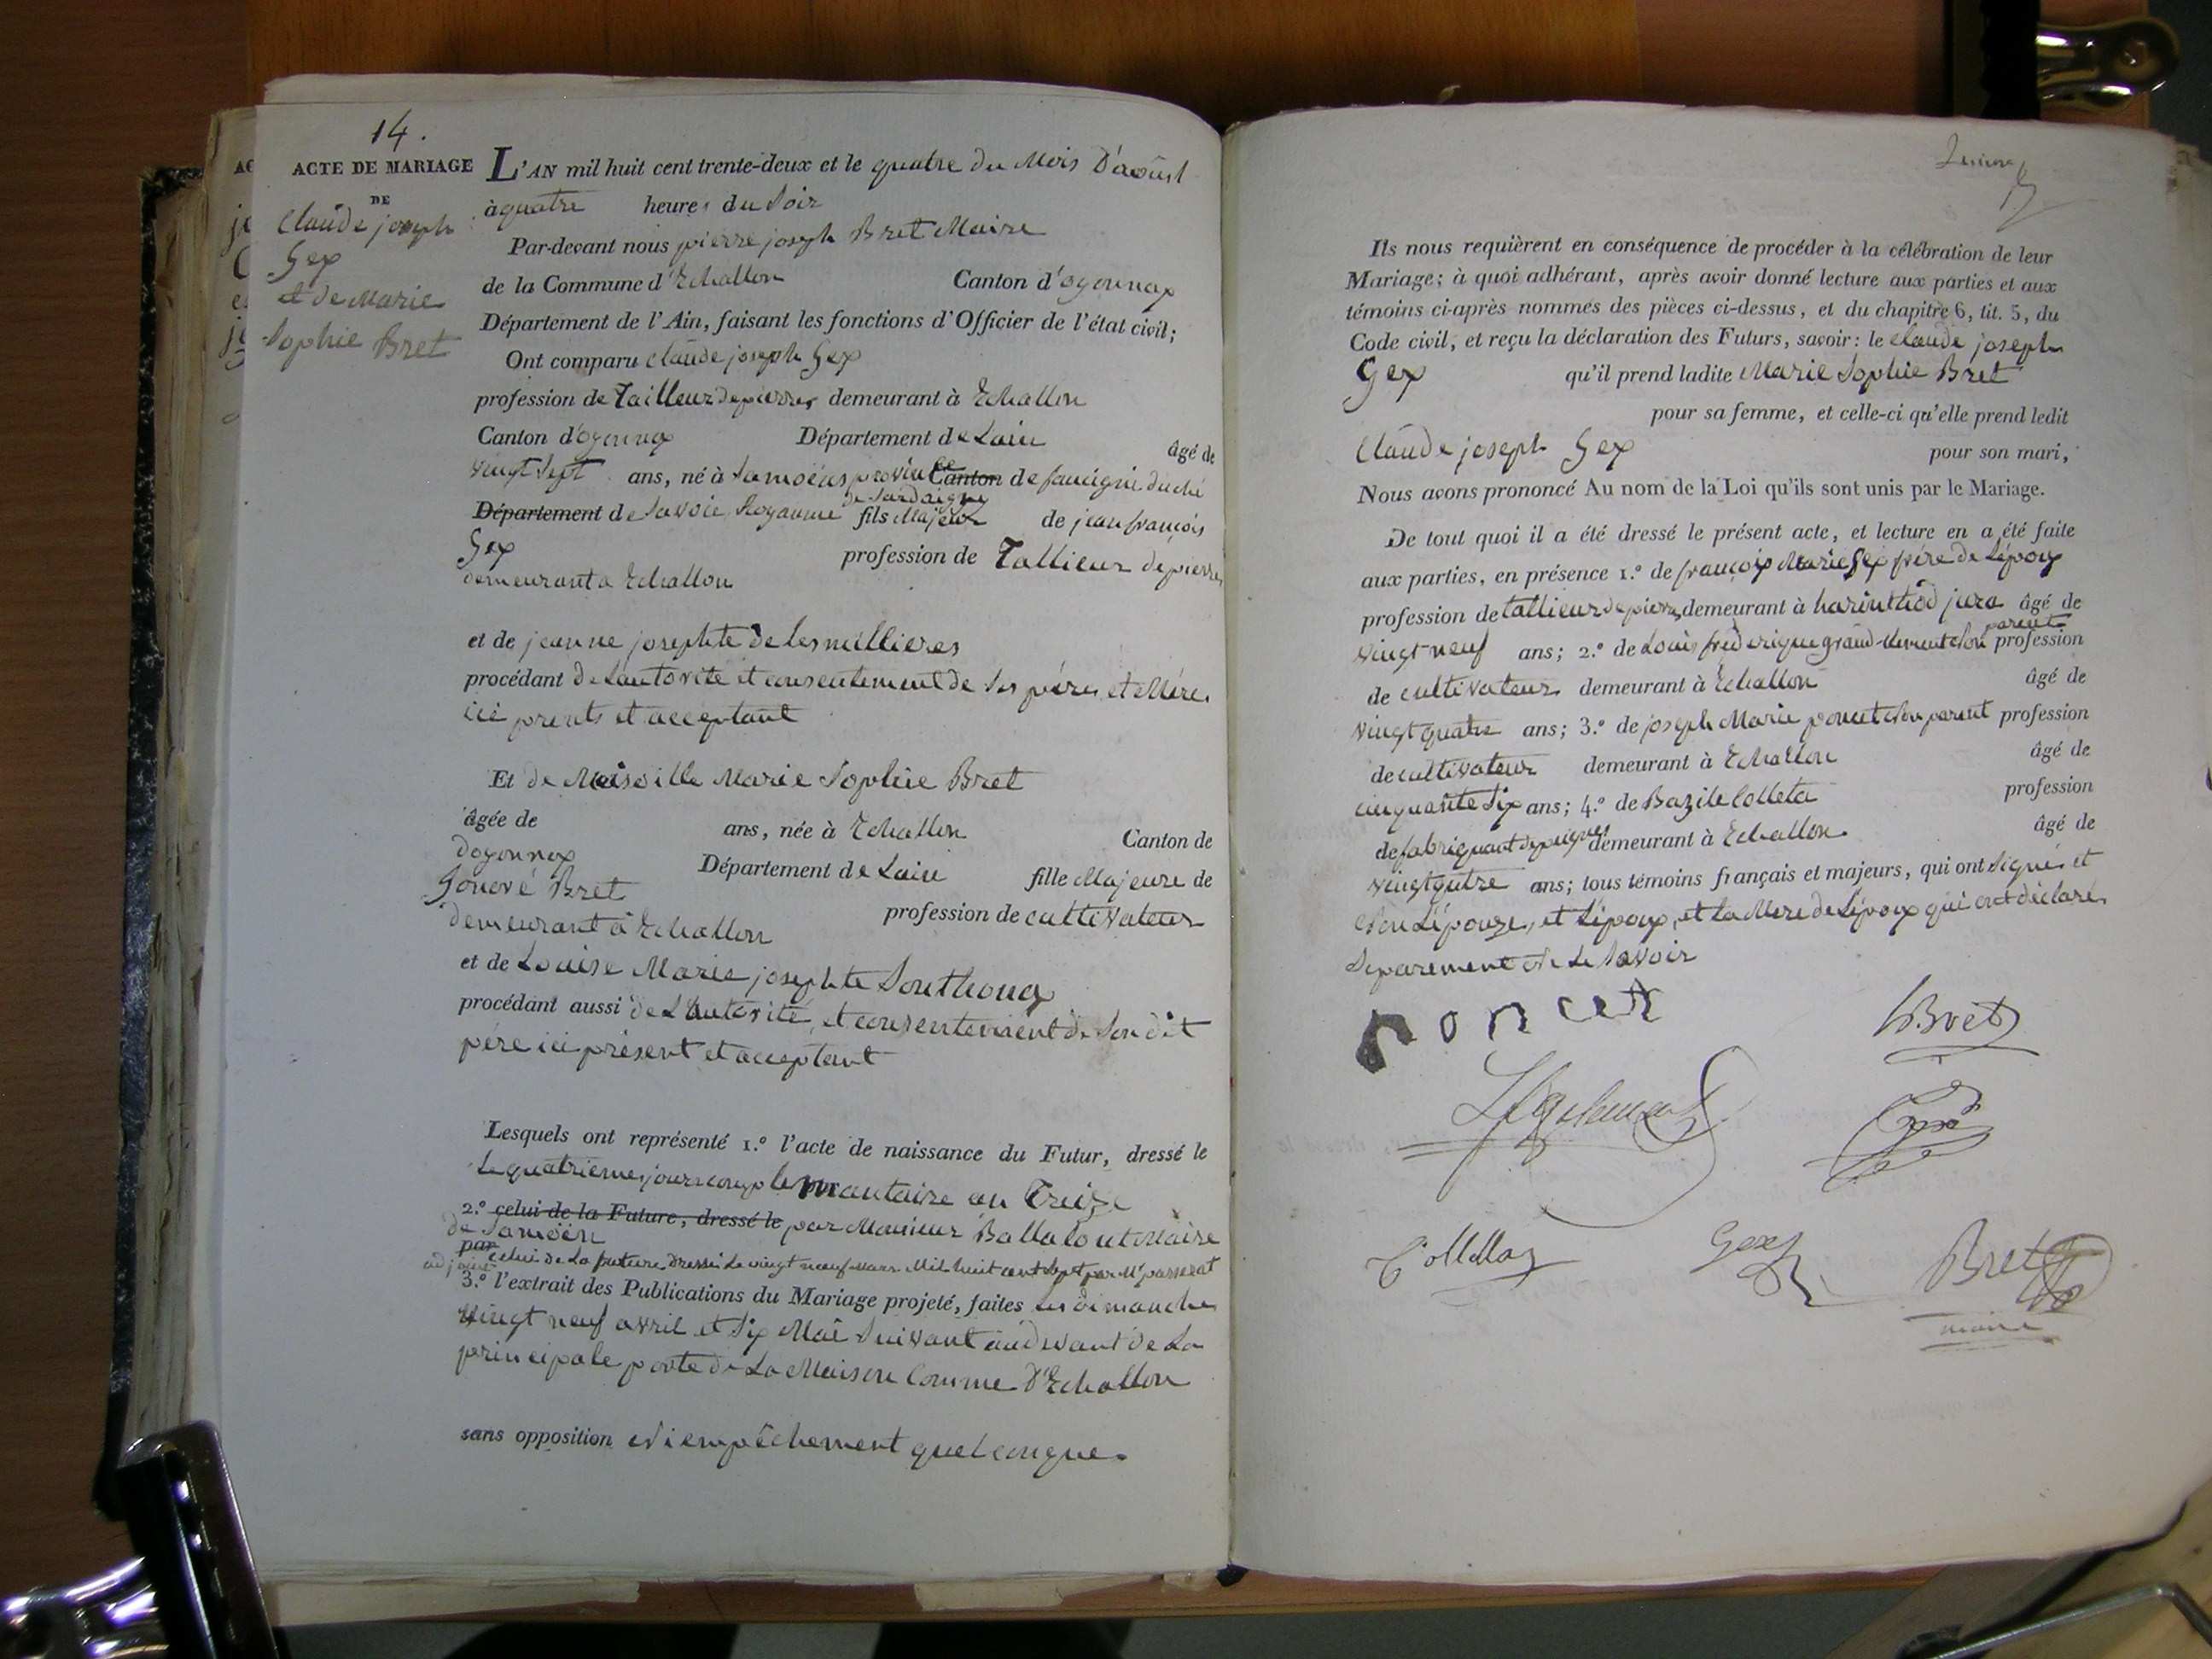 14.
ACTE DE MARIAGE
DE
Claude joseph
Gex
et de Marie
Sophie Bret
L'AN mil huit cent trente-deux et le quatre du Mois D'aoûst
à quatre heures du Soir
Par-devant nous pierre joseph Bret Maire
de la Commune d'Echallon Canton d'oyonnax
Département de l'Ain, faisant les fonctions d'Officier de l'état civil;
Ont comparu Claude joseph Gex
profession de Tailleur de pierres demeurant à Echallon
Canton d'oyonnax Département de Lain âgé de
vingt Sept ans, né à Samoëns province Canton de faucigni duché
Département de Savoie Royaume de Sardaigne fils Majeur de jean françois
Gex profession de Tallieur de pierres
demeurant a Echallon
et de jeanne josephte de Lesmillieres
procédant de Lautorité et consentement de Ses pére et Mére
ici prents et acceptant
Et de Moisoille Marie Sophie Bret
âgée de ans, née à Echallon Canton de
doyonnax Département de Lain fille Majeure de
Honoré Bret profession de cultivateur
demeurant à Echallon
et de Louise Marie josephte Southonax
procédant aussi de L'autorité, et consentement de Son dit
pére ici présent et acceptant
Lesquels ont représenté 1.º l'acte de naissance du Futur, dressé le
Le quatrieme jour complemantaire an Treize
2.º celui de la Future, dressé le par Monsieur Ballalout Maire
de Samoën
par celui de La future Dressé Le vingt neuf Mars Mil huit cent Sept par Mr passerat
adjoint
3.º l'extrait des Publications du Mariage projeté, faites Les dimanche
vingt neuf avril et Six Mai Suivant audevant de La
principale porte de La Maison Comme D'Echallon
sans opposition Ni empêchement quelconque.
Ils nous requièrent en conséquence de procéder à la célébration de leur
Mariage; à quoi adhérant, après avoir donné lecture aux parties et aux
témoins ci-après nommés des pièces ci-dessus, et du chapitre 6, tit. 5, du
Code civil, et reçu la déclaration des Futurs, savoir: le Claude joseph
Gex qu'il prend ladite Marie Sophie Bret
pour sa femme, et celle-ci qu'elle prend ledit
Claude joseph Gex pour son mari,
Nous avons prononcé Au nom de la Loi qu'ils sont unis par le Mariage.
De tout quoi il a été dressé le présent acte, et lecture en a été faite
aux parties, en présence 1.º de françois Marie Gex frére de Lépoux
profession de tallieur de pierre demeurant à harinthod jura âgé de
vingt-neuf ans; 2.º de Louis frederique grand-clement Non parent profession
de cultivateur demeurant à Echallon âgé de
vingt quatre ans; 3.º de joseph Marie poncet Non parent profession
de cultivateur demeurant à Echallon âgé de
cinquante Six ans; 4.º de Bazile Colleta profession
de fabriquant de peignes demeurant à Echallon âgé de
vingt qutre ans; tous témoins français et majeurs, qui ont Signés et
Non Lépouze, et Lépoux, et La Mere de Lépoux qui ont déclarés
Separement Ne Le Savoir
poncet
Bret
Gex
Collettaz
Gex
Bret
maire